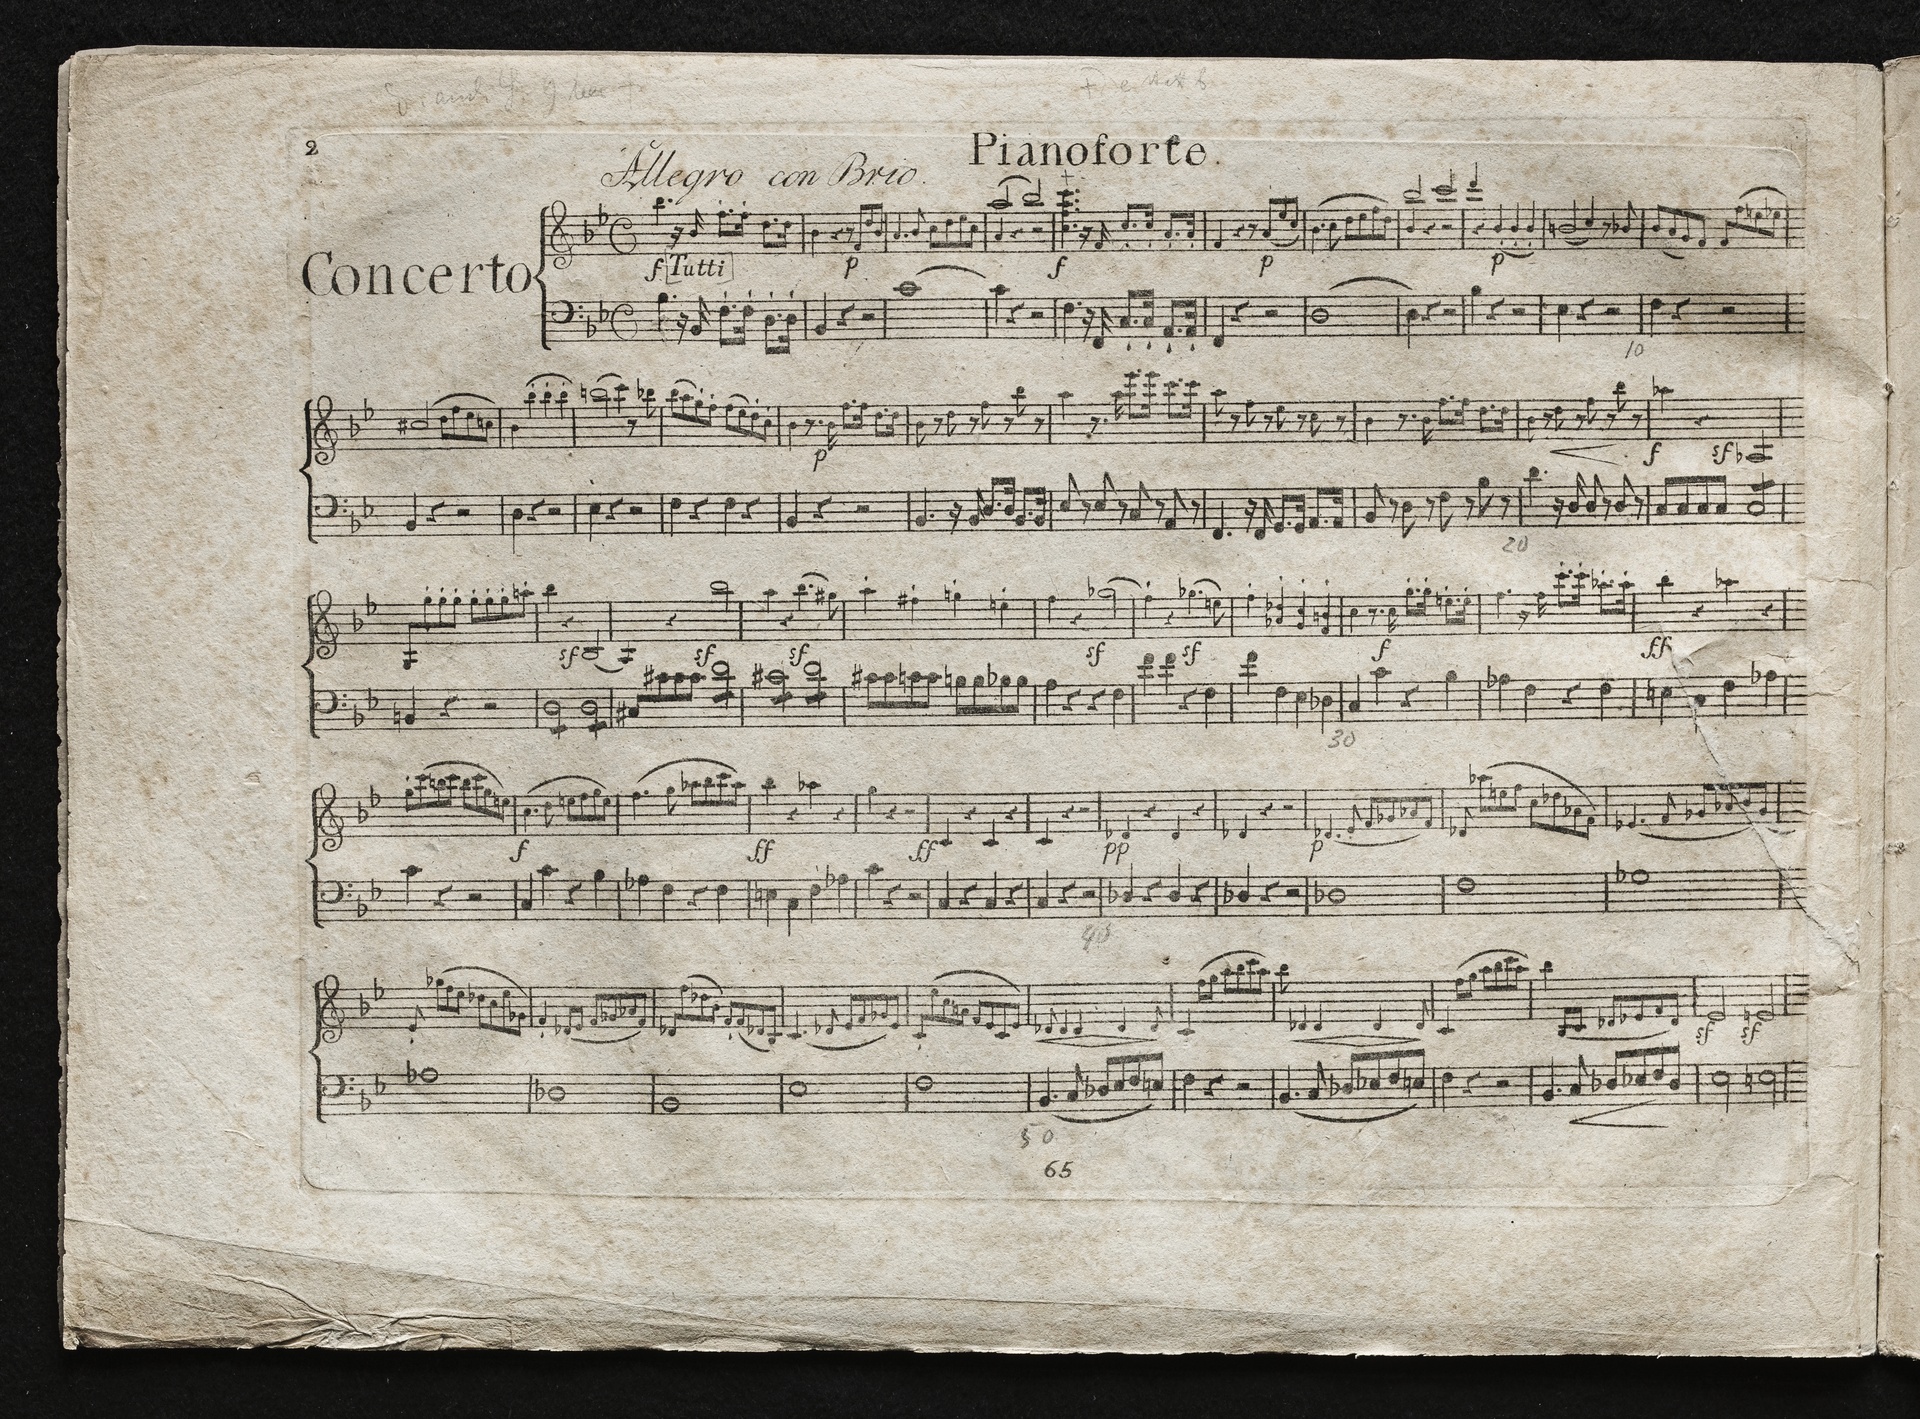 2
Pianoforte.
Allegro con Brio.
Concerto
f Tutti p f p p
10
p f sf
20
sf sf sf sf sf f ff
30
f ff ff pp p
40
sf sf
50
65